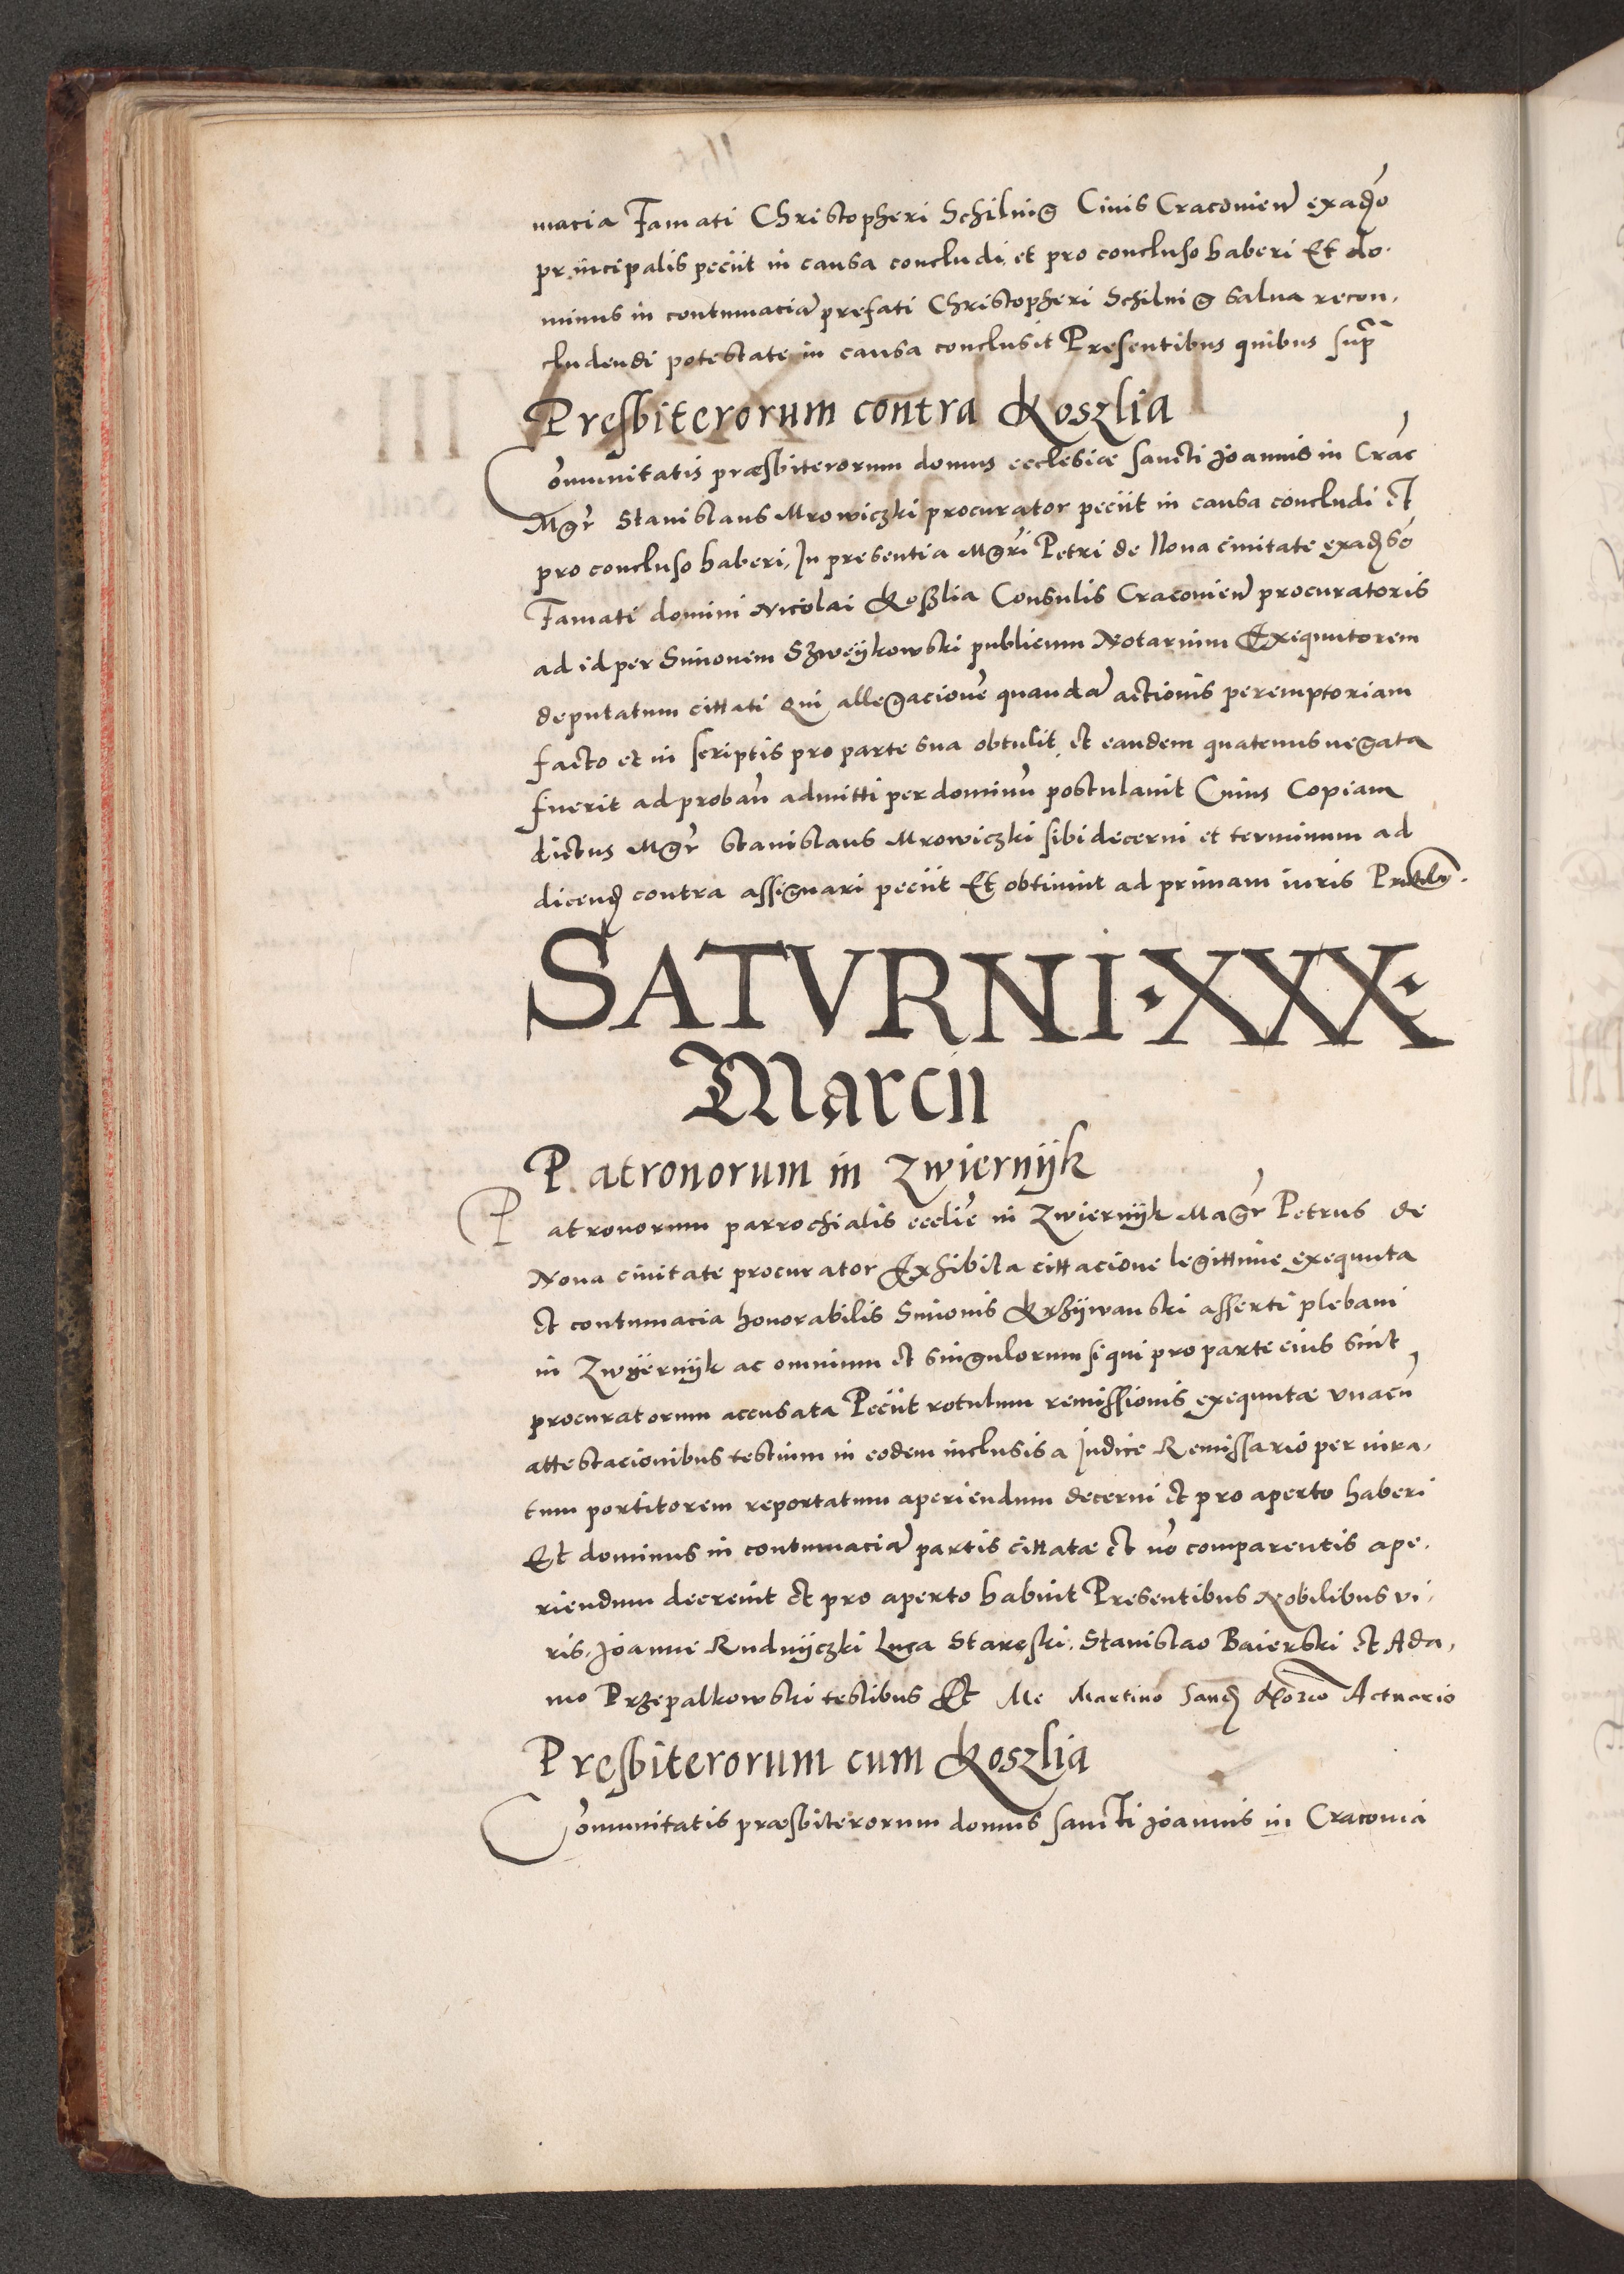 macia Famati Christopheri Schilnig Ciuis Cracouien exad͛so
principalis peciit in causa concludi et pro concluso haberi Et do.
minus in contumaciā prefati Christopheri Schilnig salua recon,
cludendi potestate in causa conclusit Presentibus quibus supr̄
Presbiterorum contra Koszlia
Com̄unitatis præsbiterorum domus ecclesiæ sancti Joannis in Crac̄
Mgr̄ Stanislaus Mrowiczki procurator peciit in causa concludi et
pro concluso haberi, In presentia Mgr̄i Petri de Noua ciuitate exad͛so
Famati domini Nicolai Koszlia Consulis Cracouien procuratoris
ad id per Simonem Szweÿkowski publicum Notarium Exequutorem
deputatum cittati Qui allegacionē quandā actionis peremptoriam
facto et in scriptis pro parte sua obtulit et eandem quatenus negata
fuerit ad proban̄ admitti per dominū postulauit Cuius Copiam
dictus Mgr̄ Stanislaus Mrowiczki sibi decerni et terminum ad
dicend contra assignari peciit Et obtinuit ad primam iuris
SATVRNI·XXX·
Marcii
Patronorum in Zwiernÿk
Patronorum parrochialis ecclīe in Zwiernÿk Magr̄ Petrus de
Noua ciuitate procurator Exhibita cittacione legittime exequuta
et contumacia honorabilis Simonis Krzÿwanski asserti plebani
in Zwÿernÿk ac omnium et singulorum si qui pro parte eius sint
procuratorum accusata Peciit rotulum remissionis exequutæ vnacū
attestacionibus testium in eodem inclusis a Judice Remissario per iura,
tum portitorem reportatum aperiendum decerni et pro aperto haberi
Et dominus in contumaciā partis cittatæ et nō comparentis ape.
riendum decreuit et pro aperto habuit Presentibus Nobilibus vi,
ris, Joanne Rudnÿczki Luca Stareski, Stanislao Baierski et Ada,
mo Przepalkowski testibus Et Me Martino Actuario
Presbiterorum cum Koszlia
Com̄unitatis præsbiterorum domus sancti Joannis in Cracouia